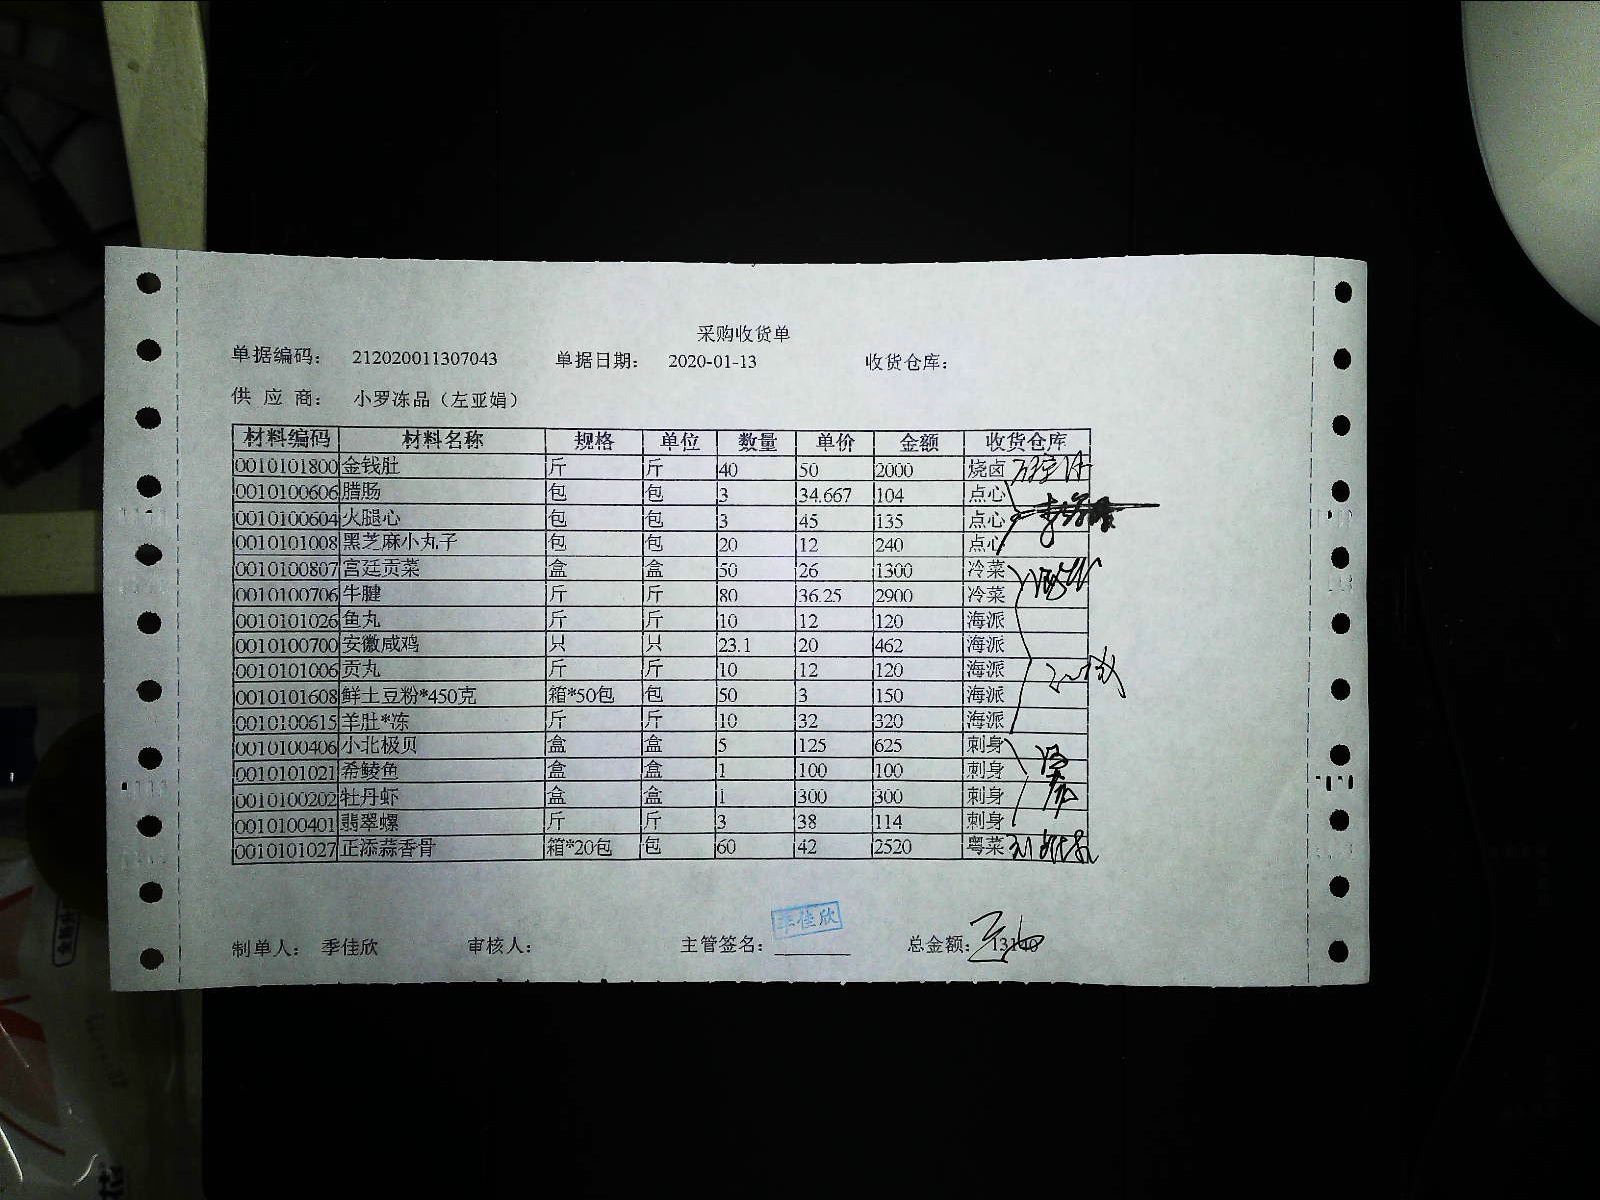 采购收货单
单据编码： 212020011307043 单据日期： 2020-01-13 收货仓库：
供 应 商： 小罗冻品（左亚娟）
材料编码 材料名称 规格 单位 数量 单价 金额 收货仓库
0010101800 金钱肚 斤 斤 40 50 2000 烧卤
0010100606 腊肠 包 包 3 34.667 104 点心
0010100604 火腿心 包 包 3 45 135 点心
0010101008 黑芝麻小丸子 包 包 20 12 240 点心
0010100807 宫廷贡菜 盒 盒 50 26 1300 冷菜
0010100706 牛腱 斤 斤 80 36.25 2900 冷菜
0010101026 鱼丸 斤 斤 10 12 120 海派
0010100700 安徽咸鸡 只 只 23.1 20 462 海派
0010101006 贡丸 斤 斤 10 12 120 海派
0010101608 鲜土豆粉*450克 箱*50包 包 50 3 150 海派
0010100615 羊肚*冻 斤 斤 10 32 320 海派
0010100406 小北极贝 盒 盒 5 125 625 刺身
0010101021 希鲮鱼 盒 盒 1 100 100 刺身
0010100202 牡丹虾 盒 盒 1 300 300 刺身
0010100401 翡翠螺 斤 斤 3 38 114 刺身
0010101027 正添蒜香骨 箱*20包 包 60 42 2520 粤菜
季佳欣
制单人： 季佳欣 审核人： 主管签名： 总金额：